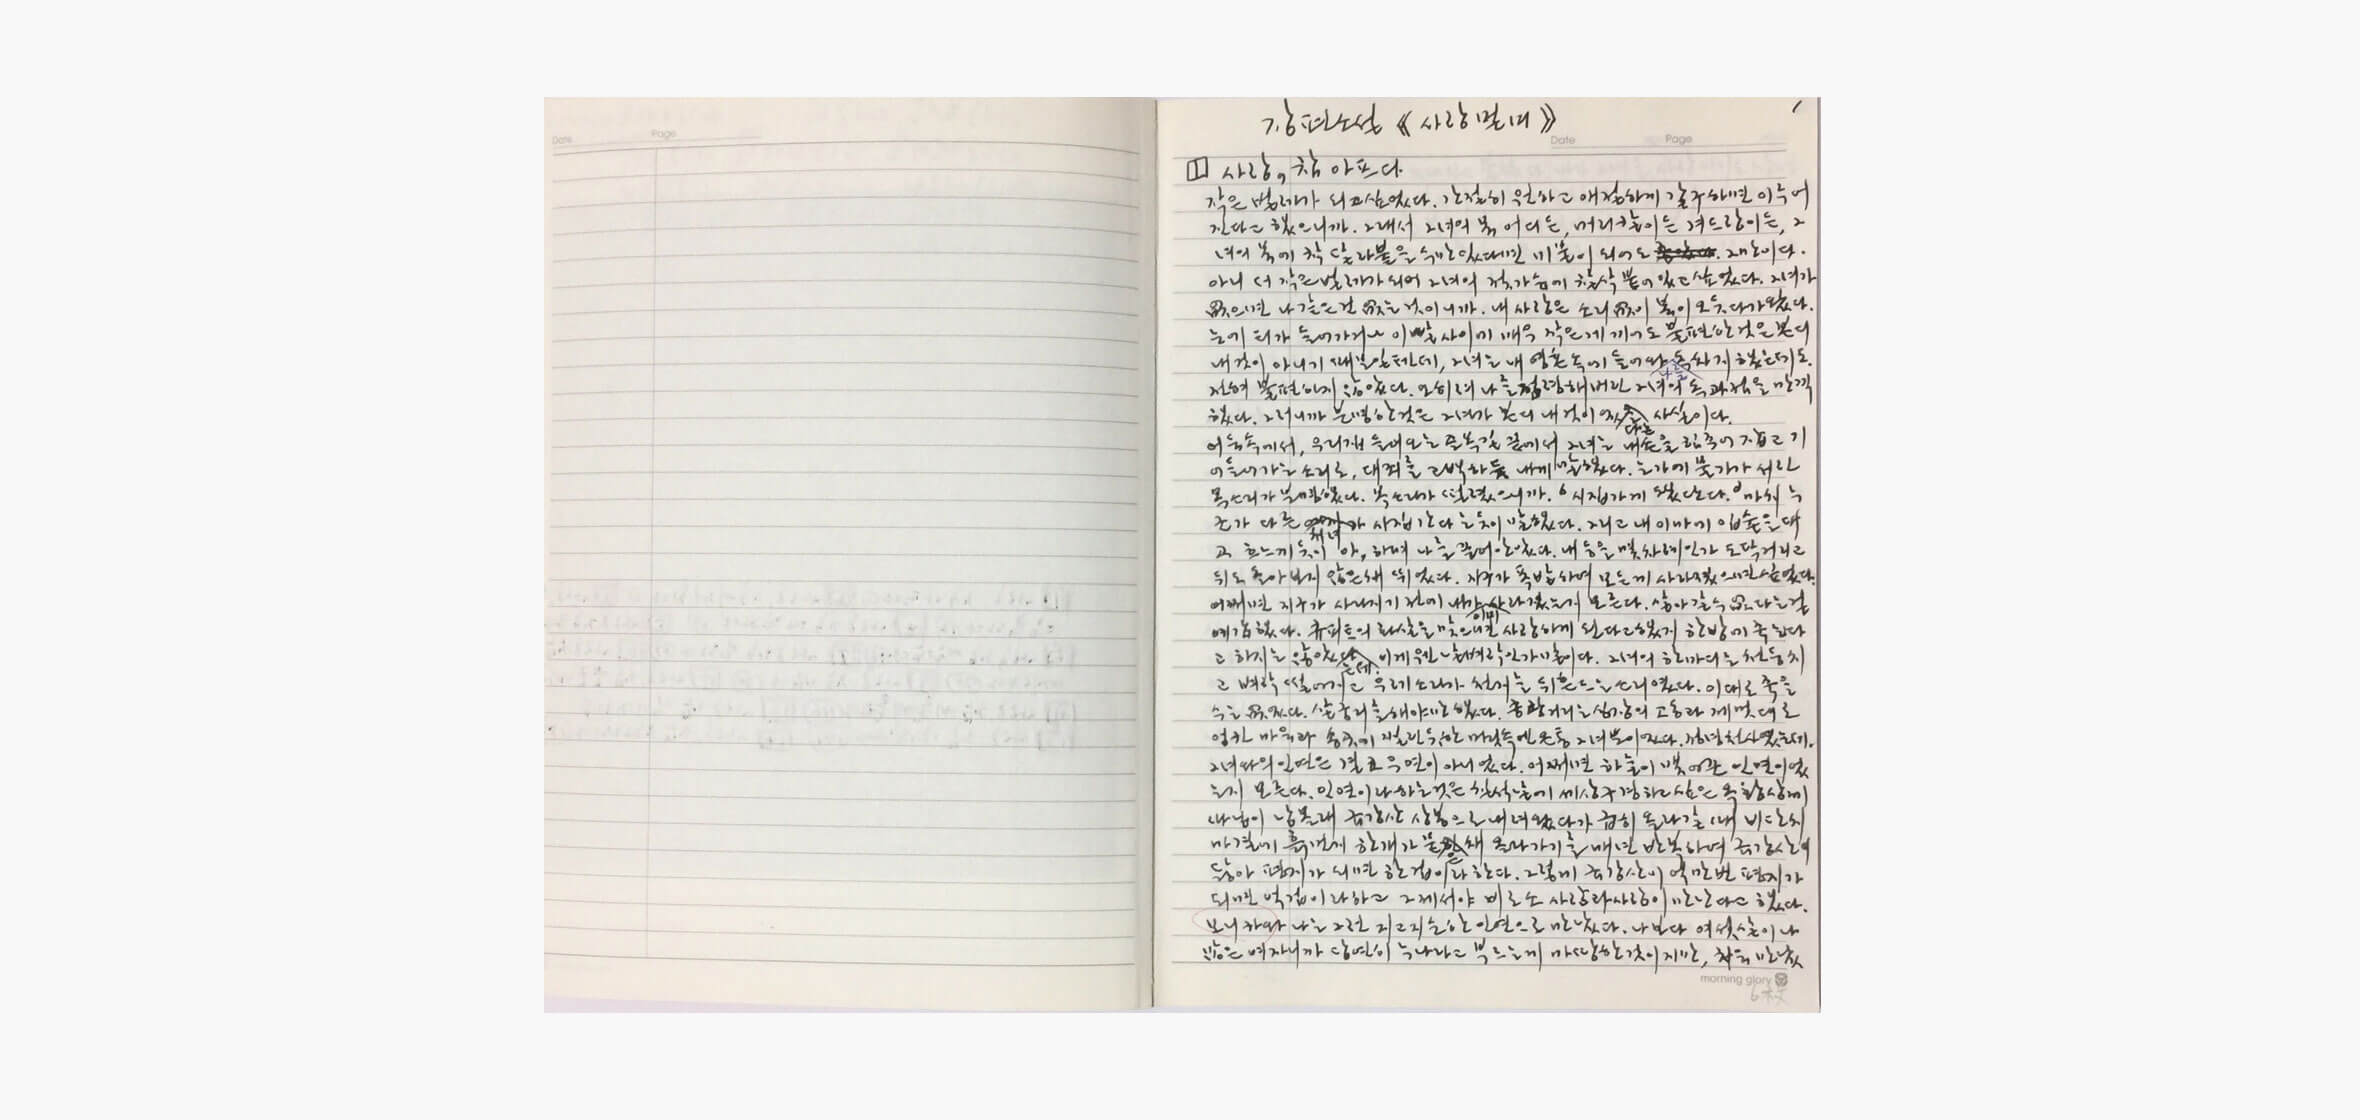 Date Page
장편소설 《사랑멀미》
Date Page
1 사랑, 참 아프다.
작은 벌레가 되고 싶었다. 간절히 원하고 애절하게 갈구하면 이루어
진다고 했으니까. 그래서 그녀의 몸 어디든, 머리칼이든 겨드랑이든, 그
녀의 몸에 착 달라붙을 수만 있다면 미물이 되어도 그만이다.
아니 더 작은 벌레가 되어 그녀의 젖가슴에 찰싹 붙어 있고 싶었다. 그녀가
없으면 나 같은 건 없는 것이니까. 내 사랑은 소리 없이 불이 모두 다가왔다.
눈에 티가 들어가거나 이빨 사이에 매우 작은 게 끼어도 불편한 것은 본디
내 것이 아니기 때문일 텐데, 그녀는 내 영혼 속에 들어와 독차지했는데도
전혀 불편하지 않았다. 오히려 나를 점령해버린 그녀의 독과점을 만끽
했다. 그러니까 분명한 것은 그녀가 본디 내 것이었다는 사실이다.
어둠 속에서, 우리 집 들어오는 골목길 끝에서 그녀는 내 손을 힘주어 잡고 기
어들어가는 소리로, 대죄를 고백하듯 내게 말했다. 눈가에 물기가 서린
목소리가 분명했다. 목소리가 떨렸으니까. 시집가게 됐단다. 마치 누
군가 다른 처녀가 시집간다는 듯이 말했다. 그리고 내 이마에 입술을 대
고 흐느끼듯이 아, 하며 나를 끌어안았다. 내 등을 몇 차례인가 도닥거리고
뒤도 돌아보지 않은 채 뛰었다. 지구가 폭발하며 모든 게 사라졌으면 싶었다.
어쩌면 지구가 사라지기 전에 내가 이미 사라졌는지 모른다. 살아갈 수 없다는 걸
예감했다. 큐피트의 화살을 맞으면 사랑하게 된다고 했지 한방에 죽는다
고 하지는 않았는데. 이게 웬 날벼락인가 말이다. 그녀의 한마디는 천둥치
고 벼락 떨어지고 우레 소리가 천지를 뒤흔드는 소리였다. 이대로 죽을
수는 없었다. 살 궁리를 해야만 했다. 쿵쾅거리는 심장의 고동과 제멋대로
엉킨 마음과 송곳에 찔린 듯한 머릿속엔 온통 그녀뿐이었다. 정녕 천사였는데.
그녀와의 인연은 결코 우연이 아니었다. 어쩌면 하늘이 맺어준 인연이었
는지 모른다. 인연이라 하는 것은 칠석날에 세상 구경하고 싶은 옥황상제
따님이 남몰래 금강산 상봉으로 내려왔다가 급히 올라갈 때 비단치
마결에 흙 먼지 한 개가 묻은 채 올라가기를 매년 반복하여 금강산이
닳아 평지가 되면 한 겁이라 한다. 그렇게 금강산이 억만 번 평지가
되면 억겁이라 하고 그제서야 비로소 사람과 사람이 만난다고 했다.
보니하와 나는 그런 지고지순한 인연으로 만났다. 나보다 여섯 살이나
많은 여자니까 당연히 누나라고 부르는 게 마땅한 것이지만, 처음 만났
morning glory